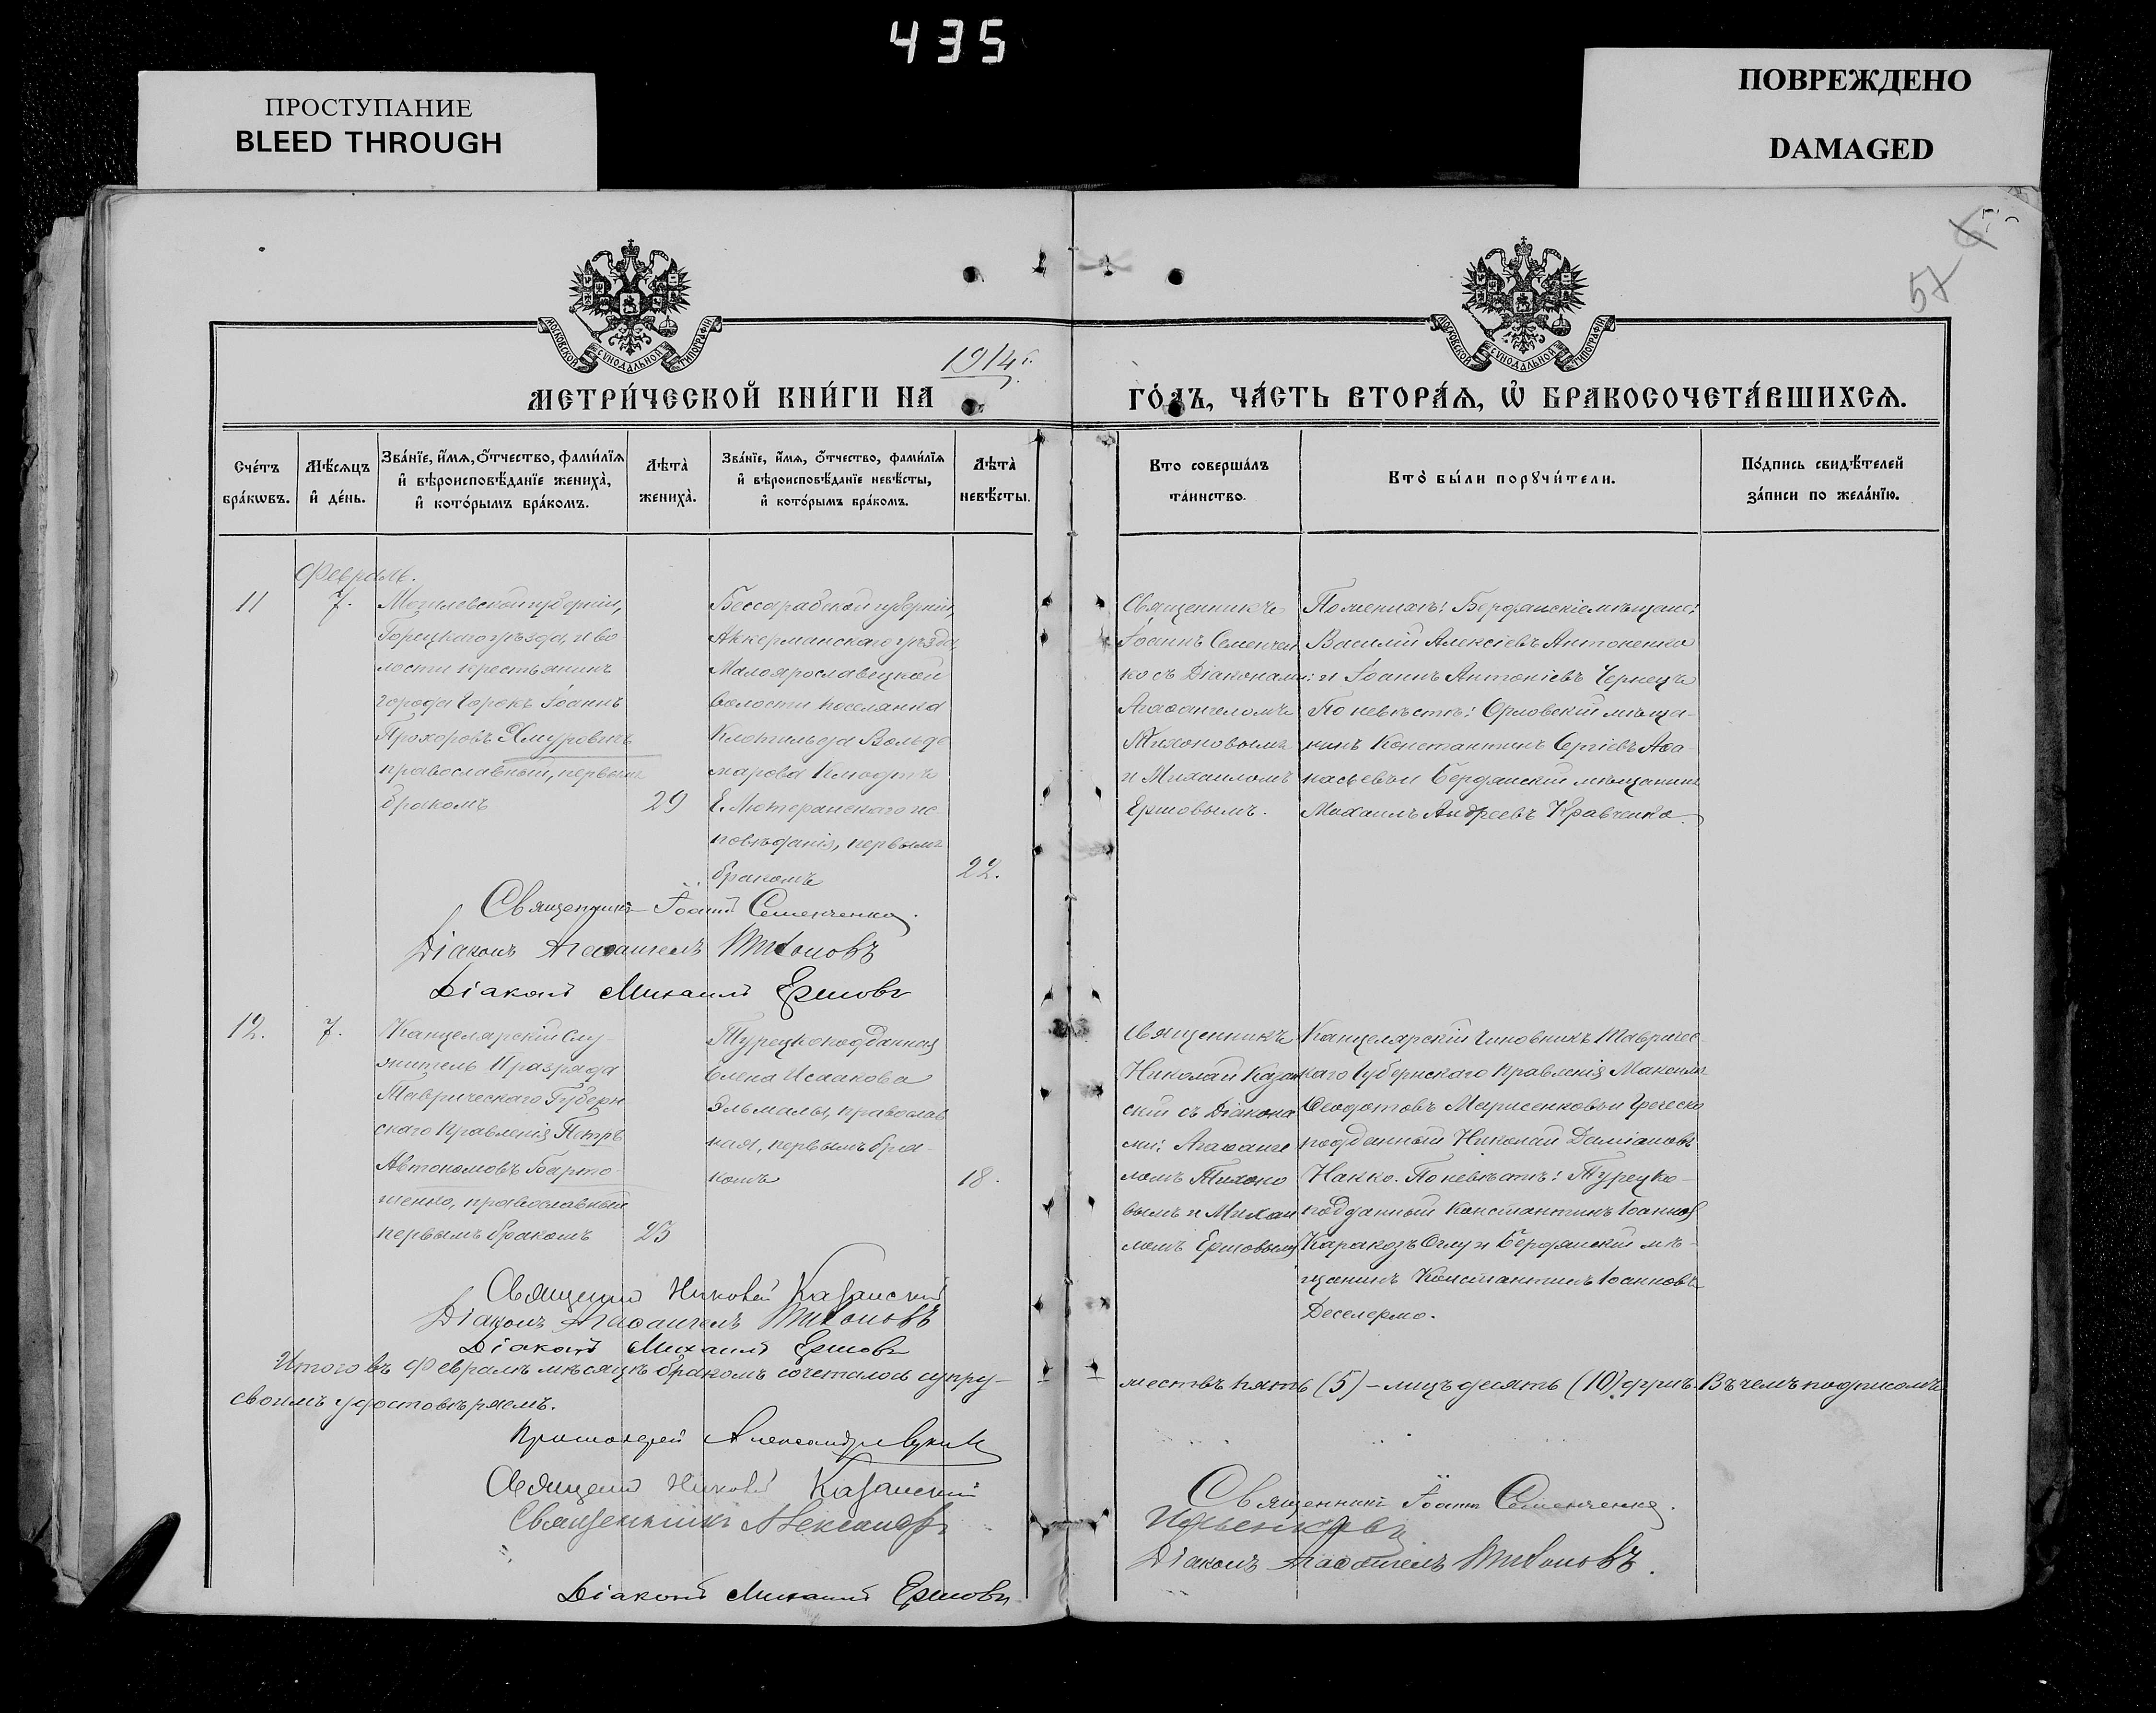 435
ПРОСТУПАНИЕ
BLEED THROUGH
ПОВРЕЖДЕНО
DAMAGED
57
МОСКОВСКОЙ СѴНОДАЛЬНОЙ ТИПОГРАФІИ
МОСКОВСКОЙ СѴНОДАЛЬНОЙ ТИПОГРАФІИ
1914 г.
МЕТРИ́ЧЕСКОЙ КНИ́ГИ НА
ГО́ДЪ, ЧА́СТЬ ВТОРА́Ѧ, Ѽ БРАКОСОЧЕТА́ВШИХСѦ.
Сче́тъ
бра́кѡвъ.
Мѣ́сѧцъ
и҆ де́нь.
Зва́нїе, и҆́мѧ, ѻ҆́тчество, фами́лїѧ
и҆ вѣроисповѣ́данїе жениха̀,
и҆ кото́рымъ бра́комъ.
Лѣта̀
жениха̀.
Зва́нїе, и҆́мѧ, ѻ҆́тчество, фами́лїѧ
и҆ вѣроисповѣ́данїе невѣ́сты,
и҆ кото́рымъ бра́комъ.
Лѣта̀
невѣ́сты.
Кто соверша́лъ
та́инство.
Кто̀ бы́ли порꙋчи́тели.
По́дпись свидѣ́телей
за́писи по жела́нїю.
Февраль.
11
7.
Могилевской губерніи,
Горецкаго уѣзда, и во
лости крестьянинъ
города Горокъ Іоаннъ
Прохоровъ Хмуровичъ
православный, первымъ
бракомъ
29
Бессарабской губерніи,
Аккерманскаго уѣзда,
Малоярославецкой
волости поселянка
Клотильда Вольде
марова Клюдтъ
Е. Лютеранскаго ис
повѣданія, первымъ
бракомъ
22.
Священникъ
Іоаннъ Семенчен
ко съ Діаконами:
Агаѳангеломъ
Тихоновымъ
и Михаиломъ
Ершовымъ.
По женихѣ: Бердянскіе мѣщане:
Василій Алексіевъ Антоненко
и Іоаннъ Антоніевъ Чернецъ
По невѣстѣ: Орловскій мѣща-
нинъ Константинъ Сергіевъ Аѳа
насьевъ и Бердянскій мѣщанинъ
Михаилъ Андреевъ Кравченко.
Священникъ Іоаннъ Семенченко.
Діаконъ Агаѳангелъ Тихоновъ
Діаконъ Михаилъ Ершовъ
12.
7.
Канцелярскій Слу
житель II разряда
Таврическаго Губерн
скаго Правленія Петръ
Автономовъ Барто-
шенко, православный
первымъ бракомъ
23
Турецкоподданная
Елена Исаакова
Эльмалы, православ
ная, первымъ бра-
комъ
18.
Священникъ
Николай Казан
скій съ Діакона
ми: Агаѳанге
ломъ Тихоно
вымъ и Михаи
ломъ Ершовымъ
Канцелярскій Чиновникъ Тавричес-
каго Губернскаго Правленія Максимъ
Ѳеодотовъ Марисенковъ и Греческо
подданный Николай Даміановъ
Накко. По невѣстѣ: Турецко-
подданный Константинъ Іоанновъ
Каракозъ Оглу и Бердянскій мѣ-
щанинъ Константинъ Іоанновъ
Деселермо.
Священникъ Николай Казанскій
Діаконъ Агаѳангелъ Тихоновъ
Діаконъ Михаилъ Ершовъ
Итого въ Февралѣ мѣсяцѣ бракомъ сочеталось супру-
жествъ пять (5) - лицъ десять (10) душъ. Въ чемъ подписомъ
своимъ удостовѣряемъ.
Протоіерей Александръ
Священникъ Николай Казанскій
Священникъ Іоаннъ Семенченко.
Священникъ Александръ
Ильенковъ
Діаконъ Агаѳангелъ Тихоновъ.
Діаконъ Михаилъ Ершовъ